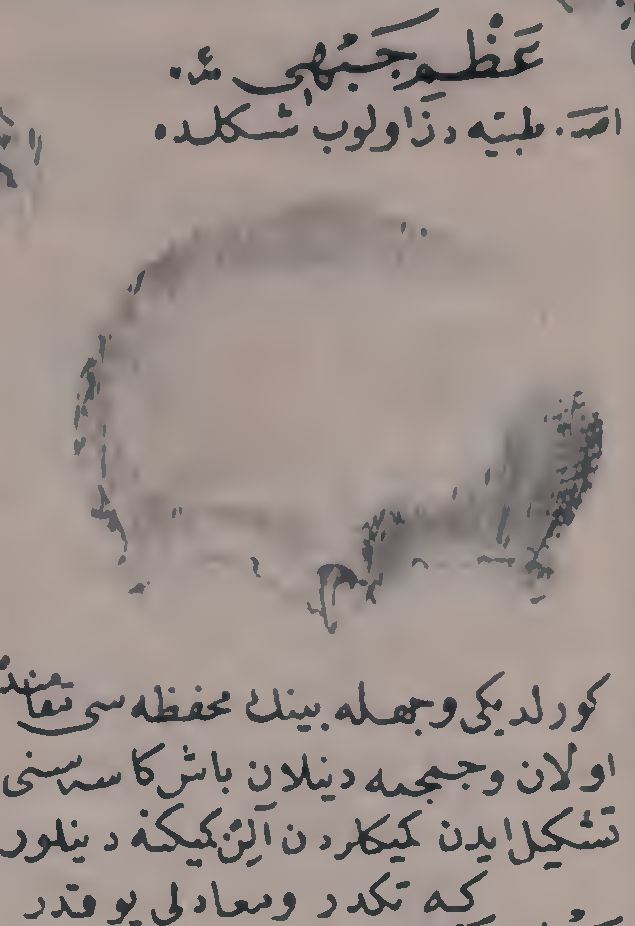 عظم جبهی
طبیه دندر اولوب شکلده
کورلدیکی وجهله بینك محفظه سی مقامنده
اولان و جمجمه دینلان باش کاسه سنی
تشکیل ایدن کمیکلردن آلن کمیکنه دینلور
که تکدر و معادلی یوقدر